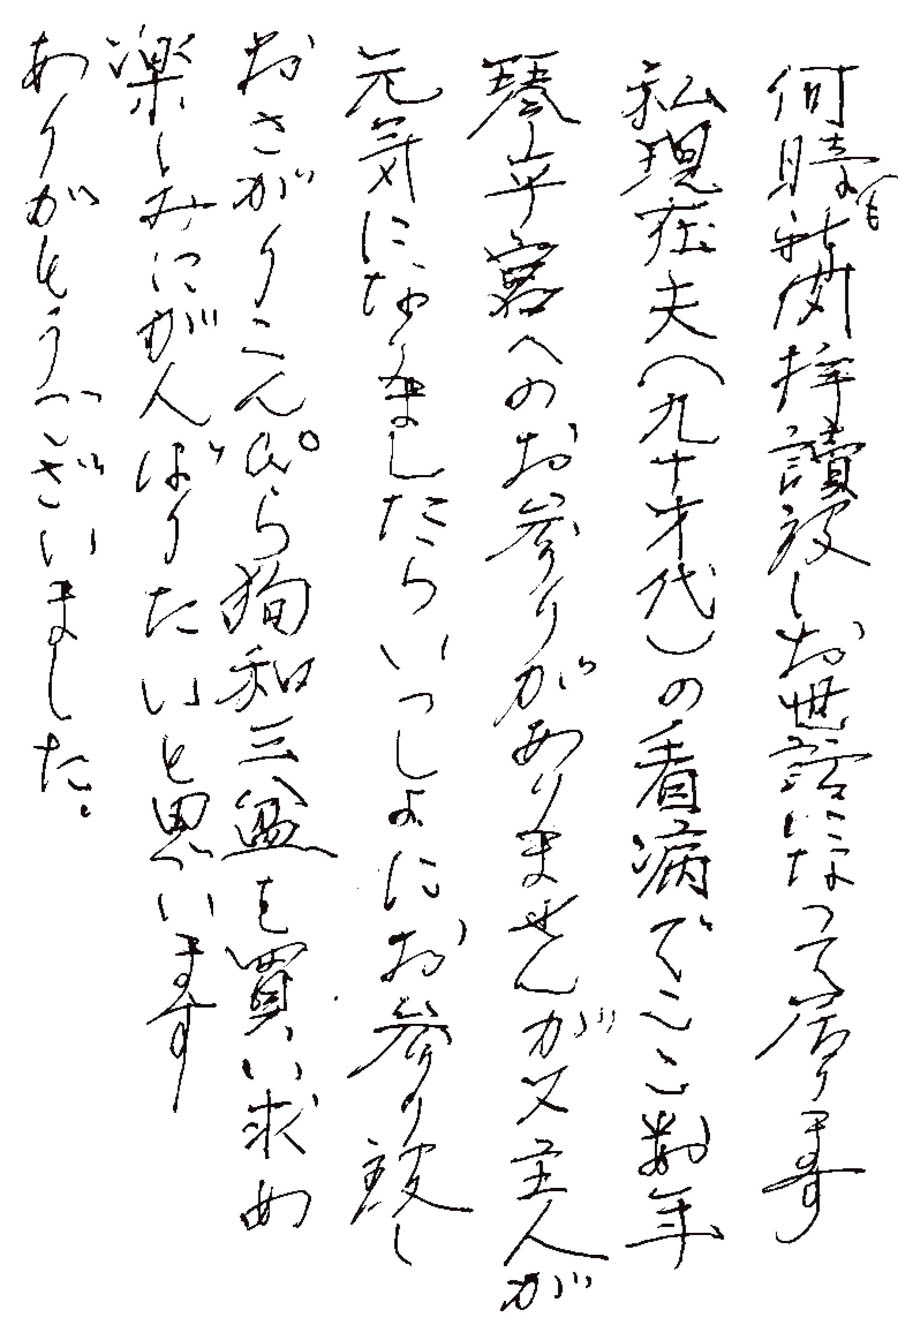 何時も新聞拝讀致しお世話になって居ります
私現在夫(九十才代)の看病でここ数年
琴平宮へのお参りがありませんが又主人が
元気になりましたらいっしょにお参り致し
おさがりこんぴら狗和三盆を買い求め
楽しみにがんばりたいと思います
ありがとうございました。